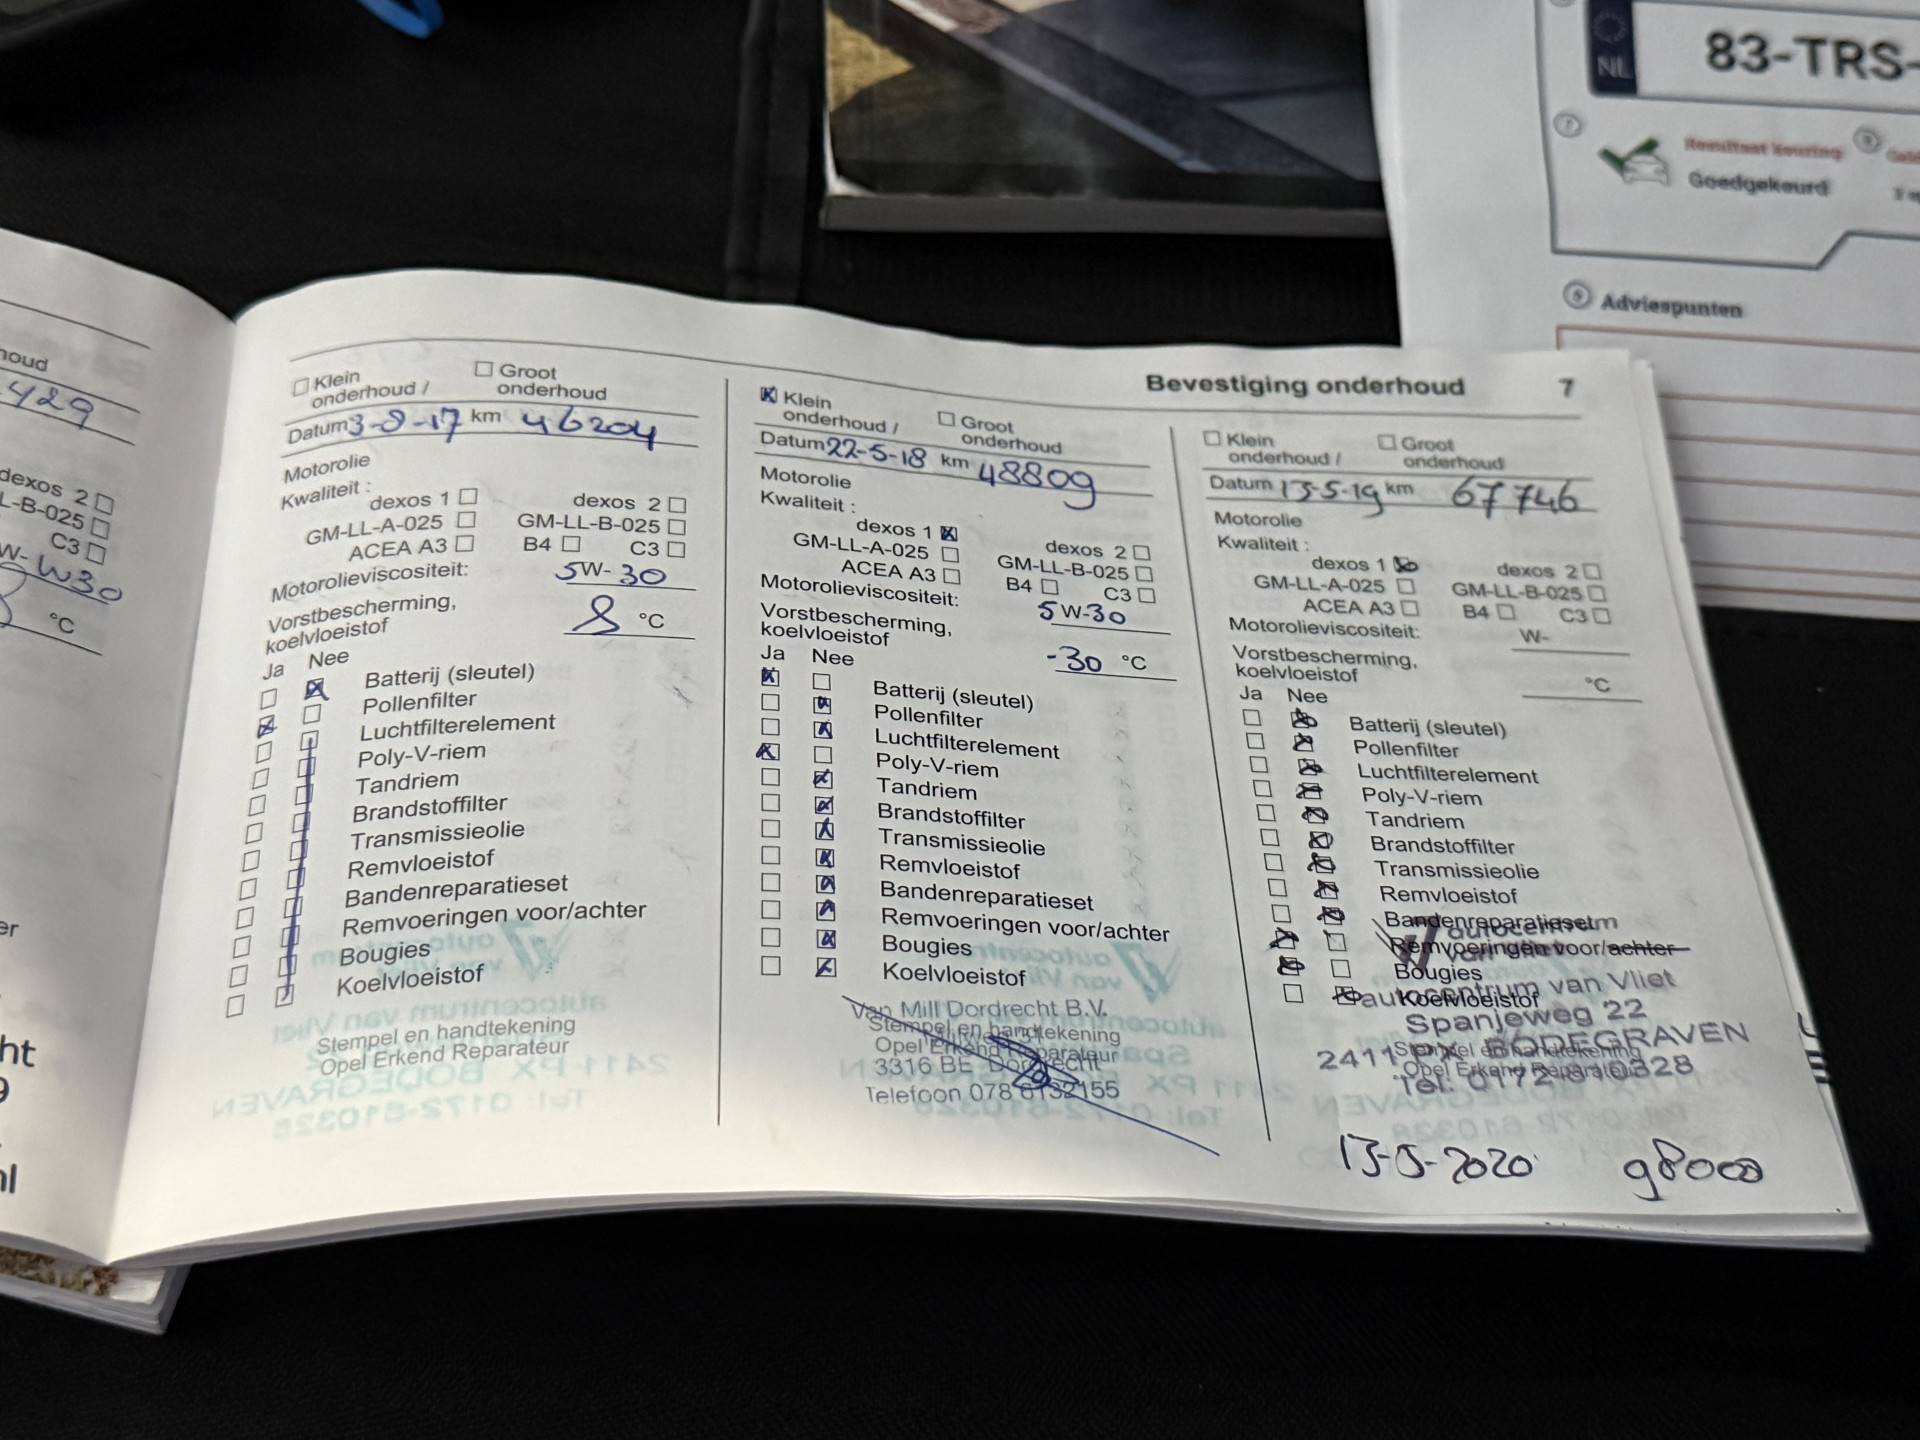 83-TRS-
NL
7
Resultaat keuring
Goedgekeurd
9 Adviespunten
houd
429
dexos 2
L-B-025
C3
W- W30
°C
er
ht
9
nl
Bevestiging onderhoud 7
Klein onderhoud /
Groot onderhoud
Datum 3-8-17 km 46204
Motorolie
Kwaliteit :
dexos 1 dexos 2
GM-LL-A-025 GM-LL-B-025
ACEA A3 B4 C3
Motorolieviscositeit: 5W-30
Vorstbescherming,
koelvloeistof °C
Ja Nee
Batterij (sleutel)
Pollenfilter
Luchtfilterelement
Poly-V-riem
Tandriem
Brandstoffilter
Transmissieolie
Remvloeistof
Bandenreparatieset
Remvoeringen voor/achter
Bougies
Koelvloeistof
Stempel en handtekening
Opel Erkend Reparateur
Klein onderhoud /
Groot onderhoud
Datum 22-5-18 km 48809
Motorolie
Kwaliteit :
dexos 1 dexos 2
GM-LL-A-025 GM-LL-B-025
ACEA A3 B4 C3
Motorolieviscositeit: 5W-30
Vorstbescherming,
koelvloeistof -30 °C
Ja Nee
Batterij (sleutel)
Pollenfilter
Luchtfilterelement
Poly-V-riem
Tandriem
Brandstoffilter
Transmissieolie
Remvloeistof
Bandenreparatieset
Remvoeringen voor/achter
Bougies
Koelvloeistof
Van Mill Dordrecht B.V.
Stempel en handtekening
Opel Erkend Reparateur
3316 BE Dordrecht
Telefoon 078 6132155
Klein onderhoud /
Groot onderhoud
Datum 13-5-19 km 67746
Motorolie
Kwaliteit :
dexos 1 dexos 2
GM-LL-A-025 GM-LL-B-025
ACEA A3 B4 C3
Motorolieviscositeit: W-
Vorstbescherming,
koelvloeistof °C
Ja Nee
Batterij (sleutel)
Pollenfilter
Luchtfilterelement
Poly-V-riem
Tandriem
Brandstoffilter
Transmissieolie
Remvloeistof
Bandenreparatieset
Remvoeringen voor/achter
Bougies
Koelvloeistof
autocentrum
van Vliet
autocentrum van Vliet
Spanjeweg 22
2411 PX BODEGRAVEN
Tel: 0172-610328
Stempel en handtekening
Opel Erkend Reparateur
13-5-2020 98000